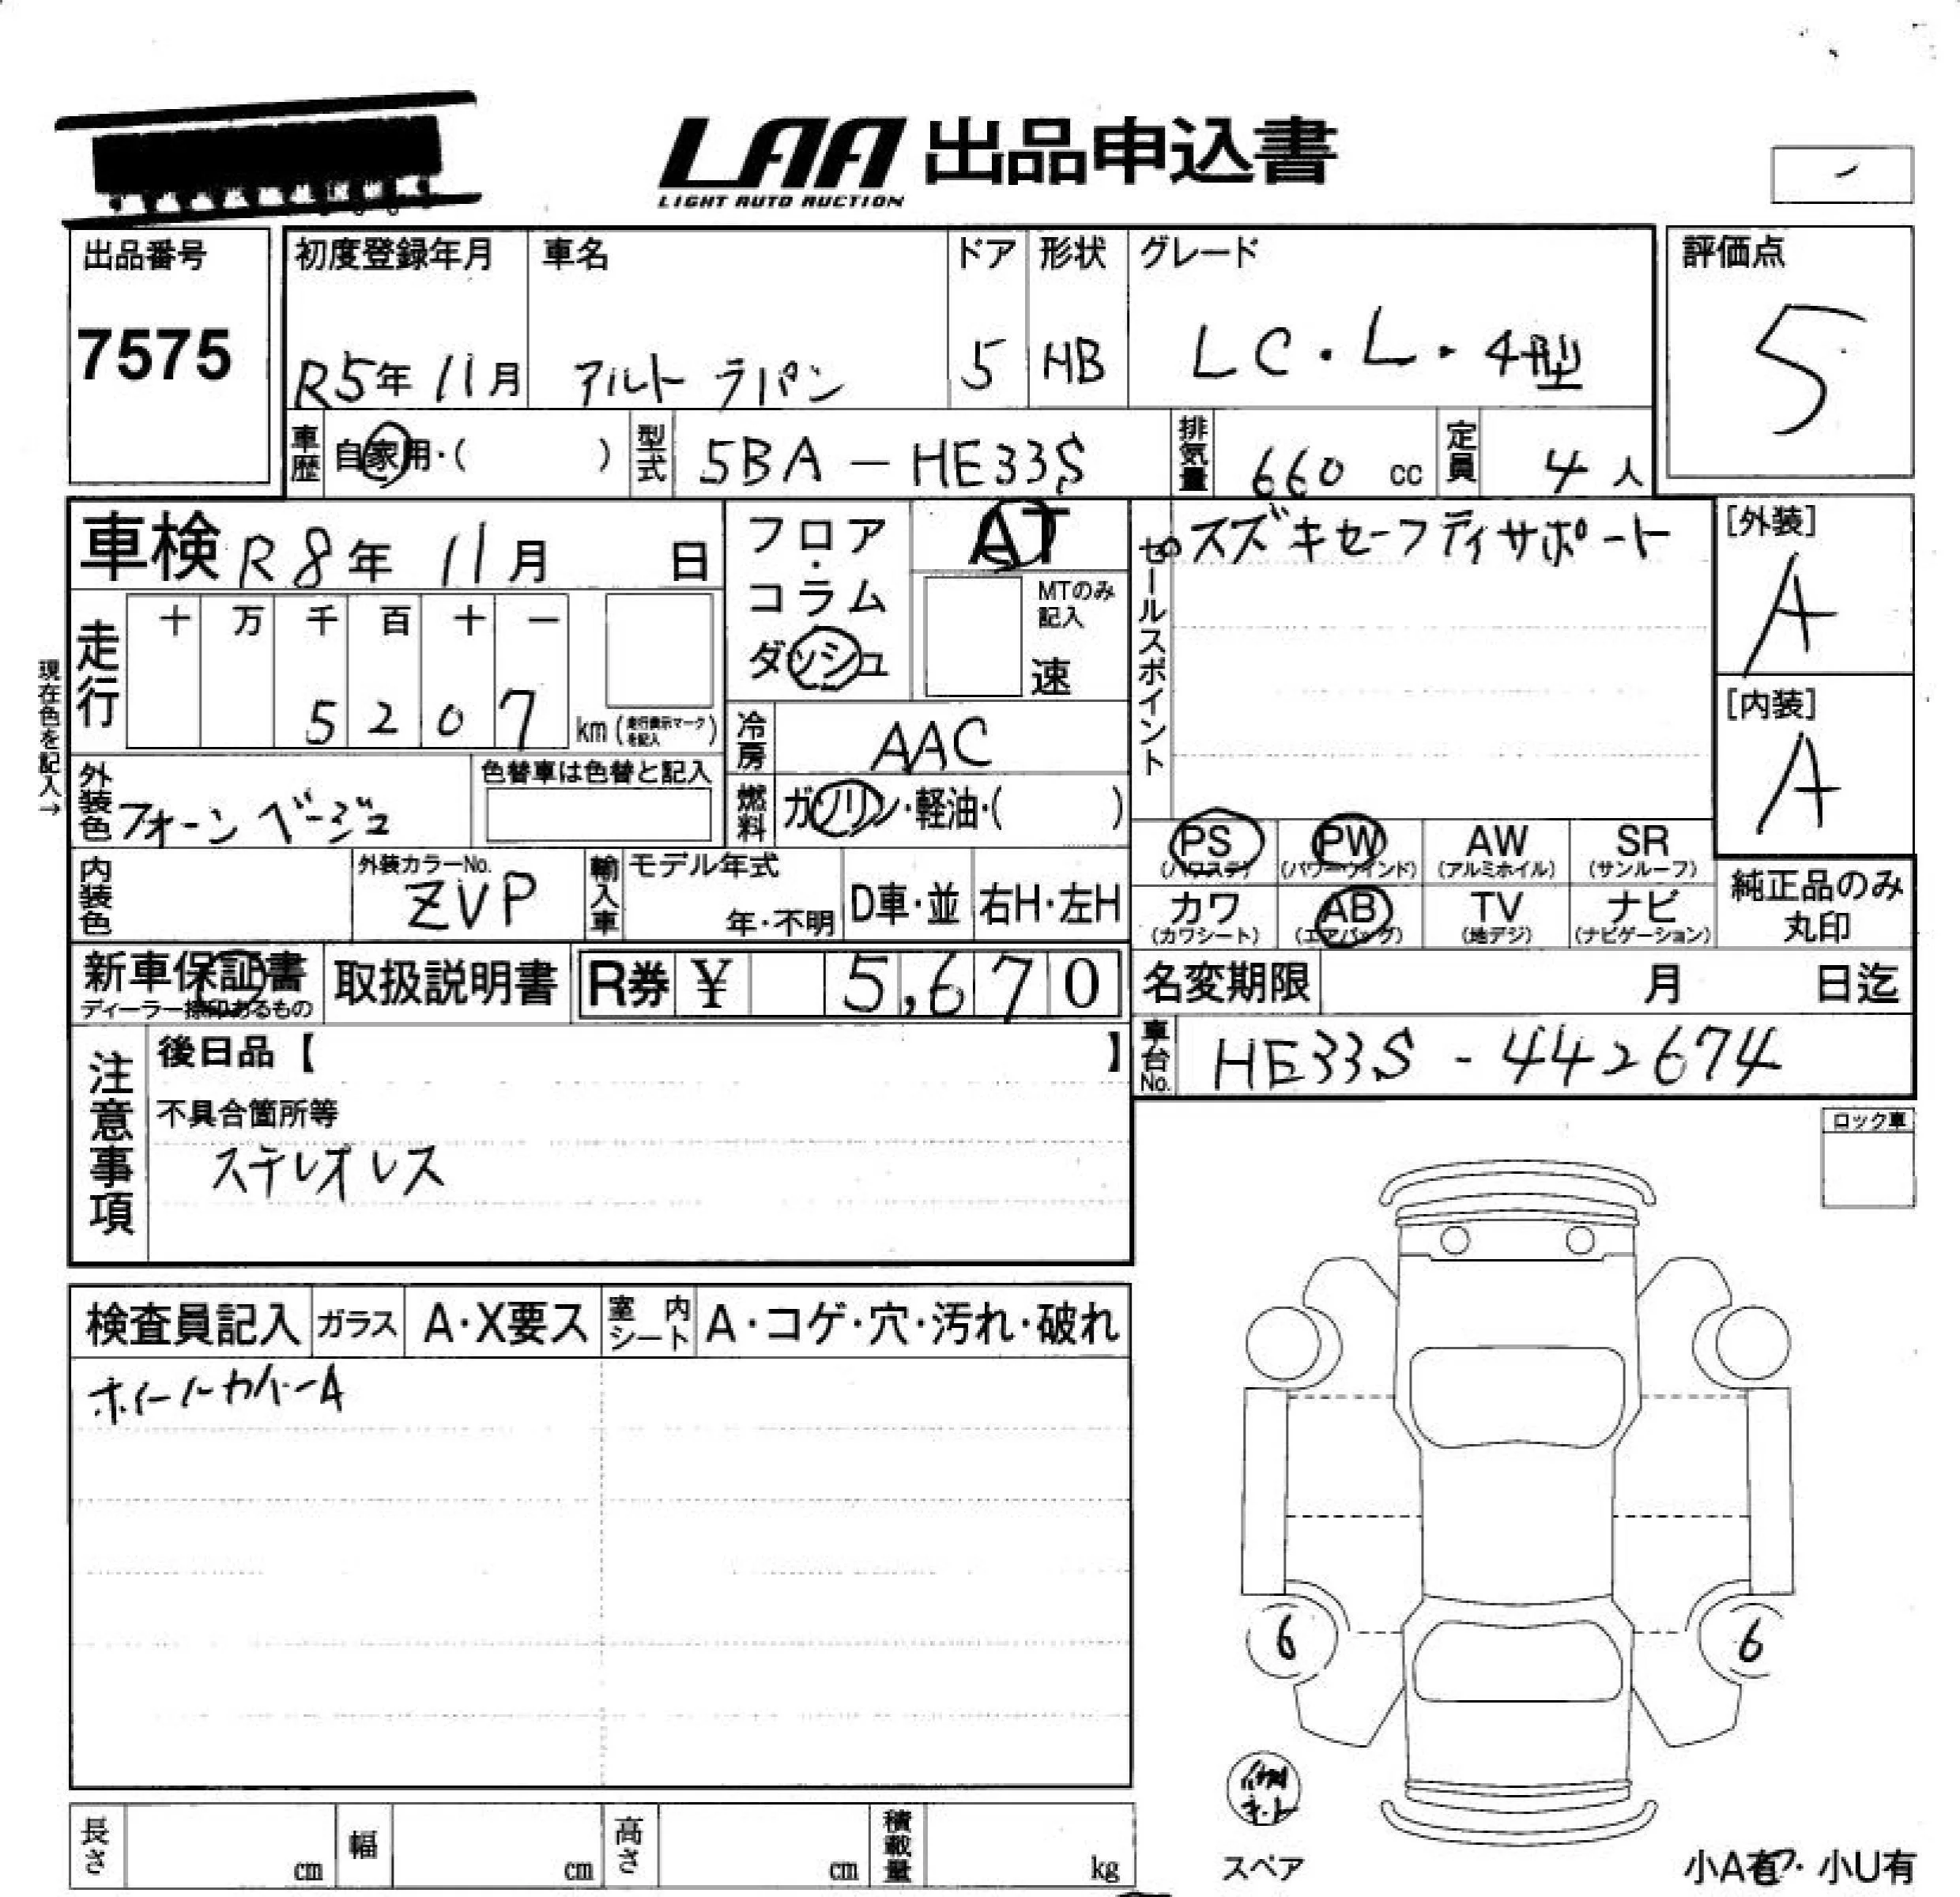 LAA 出品申込書
LIGHT AUTO AUCTION
出品番号
7575
初度登録年月 車名 ドア 形状 グレード
R5年 11月 アルト ラパン 5 HB LC・L・4型
評価点
5
車歴 自家用・( ) 型式 5BA-HE33S 排気量 660 cc 定員 4 人
車検 R8年 11月 日
フロア・コラム
ダッシュ
AT
MTのみ
記入
速
セールスポイント
スズキセーフティサポート
[外装]
A
[内装]
A
現在色を記入→
走行 十 万 千 百 十 一
5 2 0 7 km (走行表示マークを記入)
冷房 AAC
外装色 フォーンベージュ
色替車は色替と記入
燃料 ガソリン・軽油・( )
PS PW AW SR
(パワステ) (パワーウインド) (アルミホイル) (サンルーフ)
内装色 外装カラーNo.
ZVP
輸入車 モデル年式
年・不明 D車・並 右H・左H
カワ AB TV ナビ
(カワシート) (エアバッグ) (地デジ) (ナビゲーション)
純正品のみ
丸印
新車保証書
ディーラー捺印あるもの
取扱説明書 R券 ¥ 5,670
名変期限 月 日迄
車台No. HE33S-442674
注意事項
後日品【 】
不具合箇所等
ステレオレス
ロック車
検査員記入 ガラス A・X要ス 室内シート A・コゲ・穴・汚れ・破れ
ホイールカバーA
6 6
スペア
小A有・小U有
長さ cm 幅 cm 高さ cm 積載量 kg